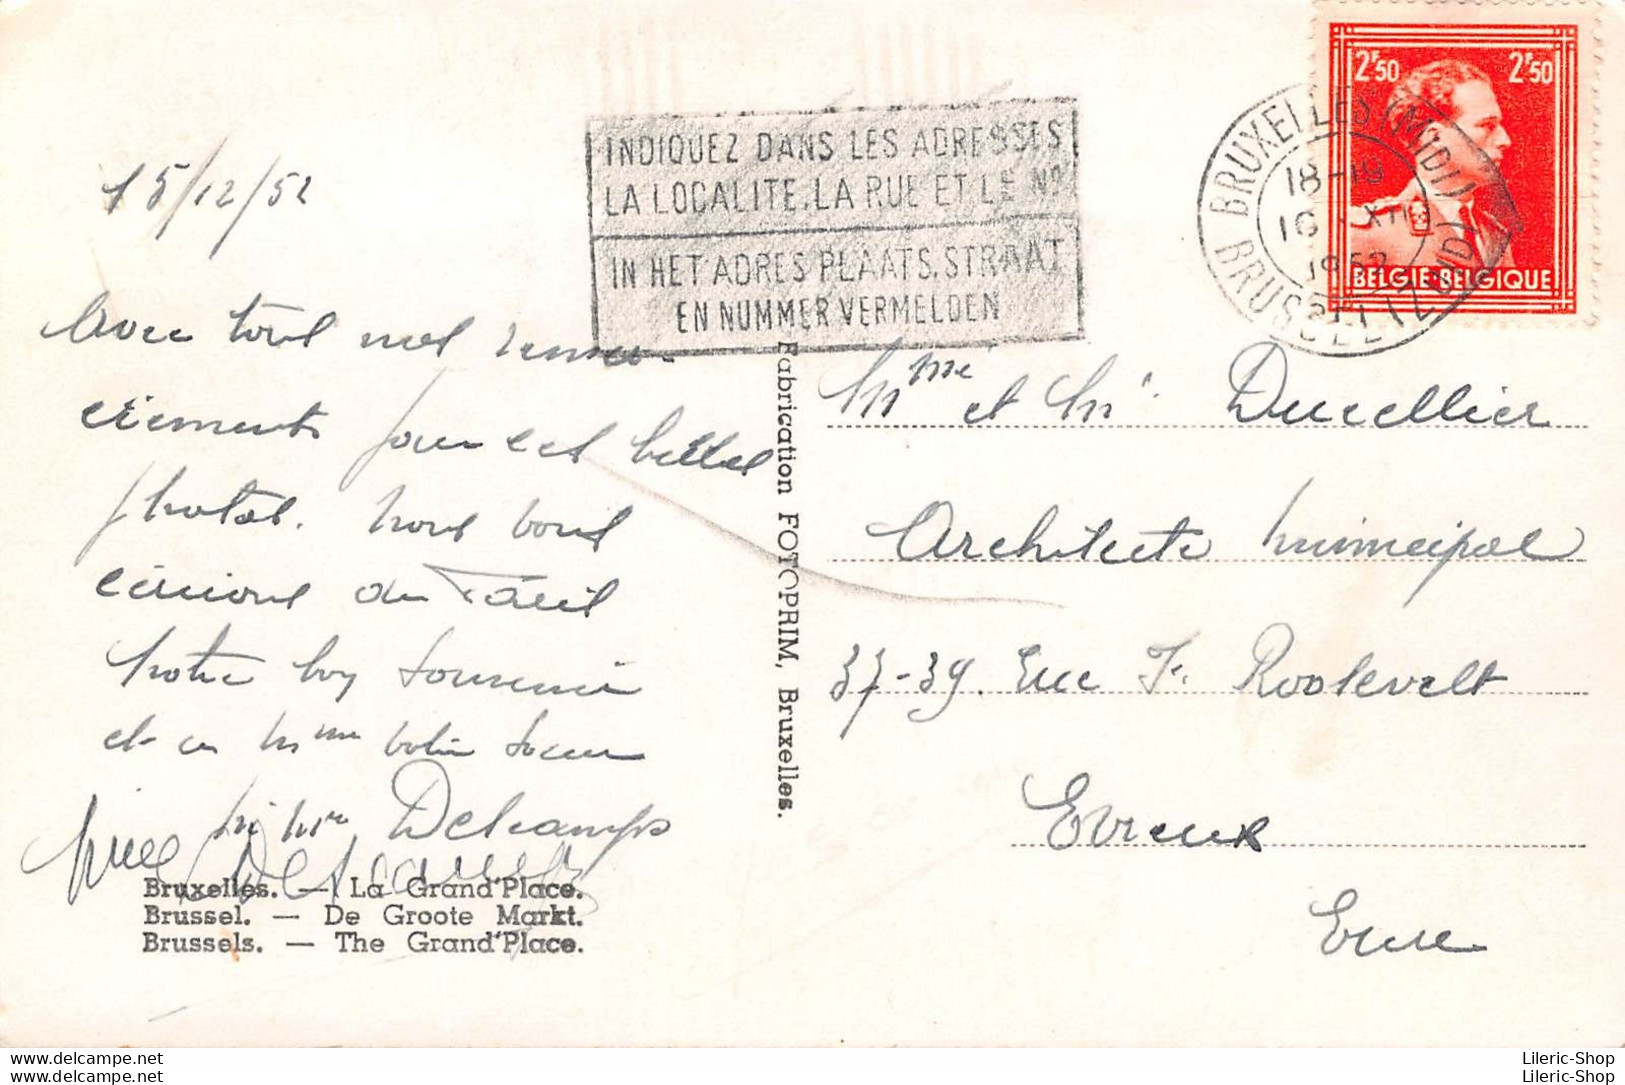 15/12/52
INDIQUEZ DANS LES ADRESSES
LA LOCALITE, LA RUE ET LE Nº
IN HET ADRES PLAATS, STRAAT
EN NUMMER VERMELDEN
BRUXELLES (MIDI)
18-19
16 XII
1952
BRUSSEL (ZUID)
2F50 2F50
BELGIE-BELGIQUE
Avec tous nos remer-
ciements pour ces belles
photos. Nous vous
écrivons
Notre souvenir
et
Mme Delcamps
Delcamps
Bruxelles. — La Grand'Place.
Brussel. — De Groote Markt.
Brussels. — The Grand'Place.
Fabrication FOTOPRIM, Bruxelles.
Mme et Mr Ducellier
Architecte Municipal
37-39. Rue F. Roosevelt
Evreux
Eure
delcampe.net
delcampe.net
Lileric-Shop
Lileric-Shop